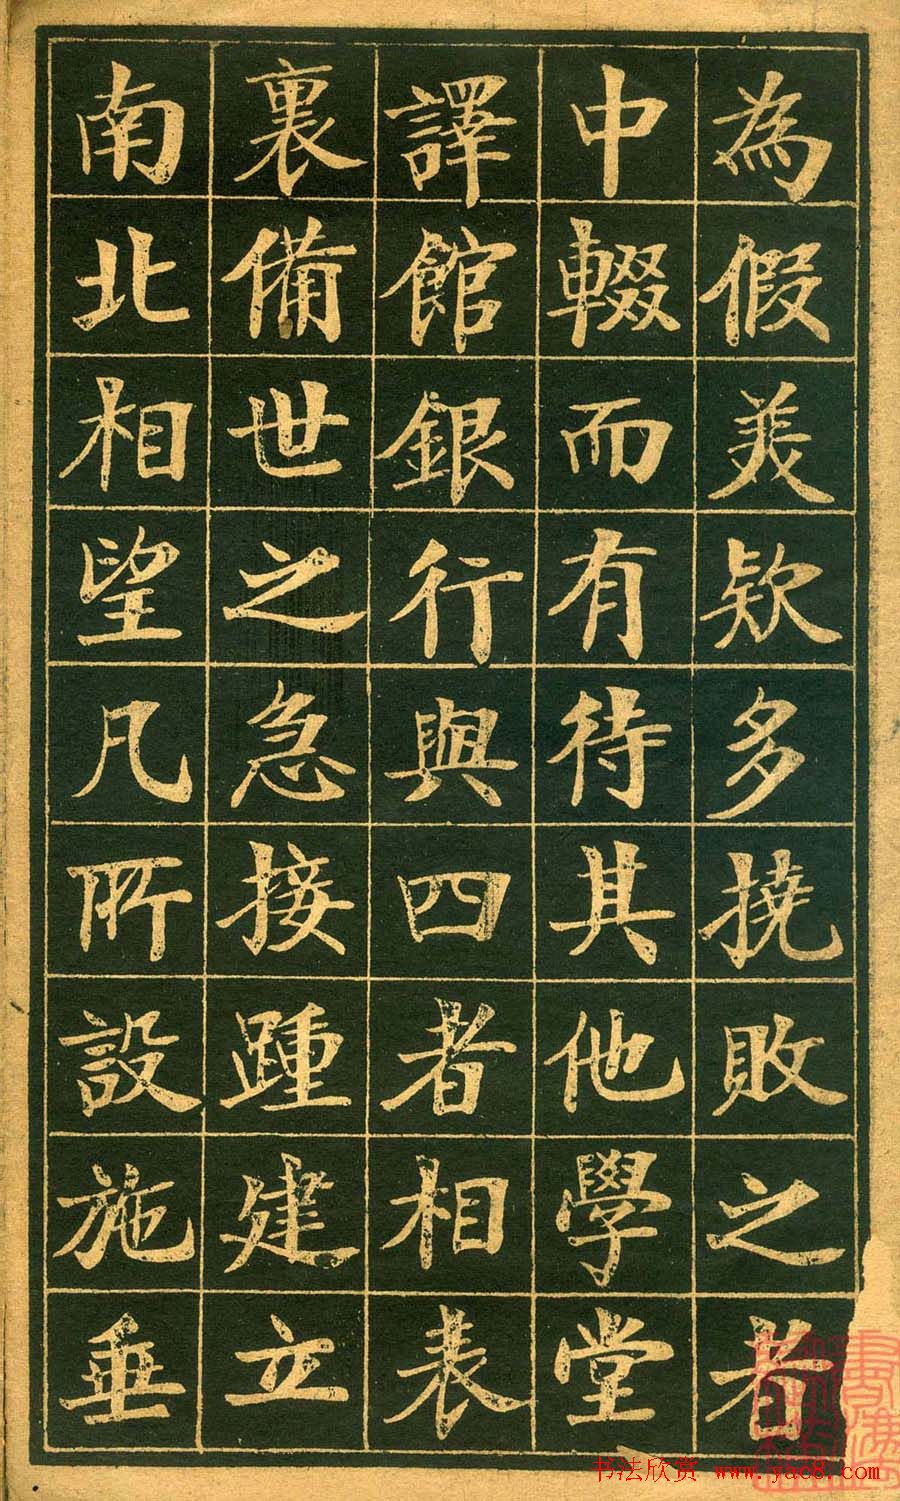 為假美欵多撓敗之者
中輟而有待其他學堂
譯館銀行與四者相表
裏備世之急接踵建立
南北相望凡所設施垂
书法欣赏 www.yac8.com